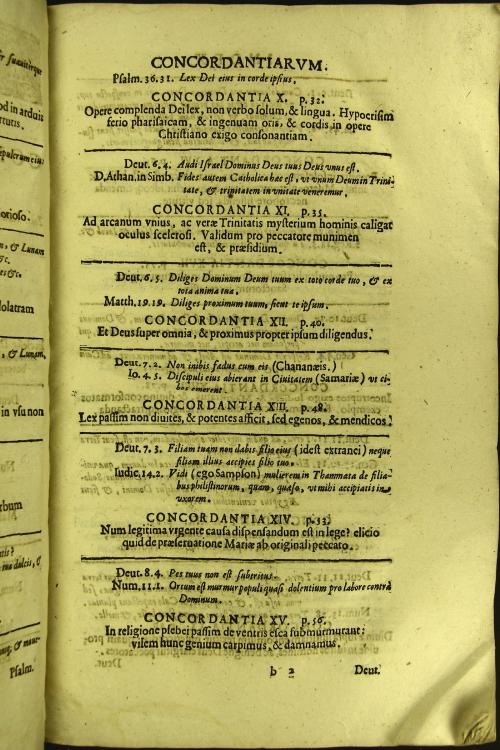 CONCORDANTIARVM.
Psalm. 36.31. Lex Dei eius in corde ipsius.
CONCORDANTIA X. p.32.
Opere complenda Dei lex, non verbo solum, & lingua. Hypocrisim
ferio pharisaicam, & ingenuam oris, & cordis in opere
Christiano exigo consonantiam.
Deut. 6.4. Audi Israel Dominus Deus tuus Deus vnus est.
D, Athan. in Simb. Fides autem Catholica hæc est, vt vnum Deum in Trini-
tate, & trinitatem in vnitate veneremur.
CONCORDANTIA XI. p.35.
Ad arcanum vnius, ac veræ Trinitatis mysterium hominis caligat
oculus scelerosi. Validum pro peccatore munimen
est, & præsidium.
Deut. 6.5. Diliges Dominum Deum tuum ex toto corde tuo, & ex
tota anima tua.
Matth. 19.19. Diliges proximum tuum, sicut te ipsum.
CONCORDANTIA XII. p.40.
Et Deus super omnia, & proximus propter ipsum diligendus.
Deut. 7.2. Non inibis fædus cum eis (Chananæis.)
Io. 4.5. Discipuli eius abierant in Ciuitatem (Samariæ) vt ci-
bos emerent
CONCORDANTIA XIII. p.48.
Lex passim non diuites, & potentes afficit, sed egenos, & mendicos.
Deut. 7.3. Filiam tuam non dabis filio eius (idest extranei) neque
filiam illius accipies filio tuo.
Iudic, 14.2. Vidi (ego Sampson) mulierem in Thamnata de filia-
bus philistinorum, quam, quæso, vt mihi accipiatis in
vxorem.
CONCORDANTIA XIV. p.53.
Num legitima vrgente causa dispensandum est in lege? elicio
quid de præseruatione Mariæ ab originali peccato.
Deut. 8.4. Pes tuus non est subtritus.
Num. 11.1. Ortum est murmur populi quasi dolentium pro labore contra
Dominum.
CONCORDANTIA XV. p.56.
In religione plebei passim de ventris esca submurmurant:
vilem hunc genium carpimus, & damnamus.
b 2 Deut.